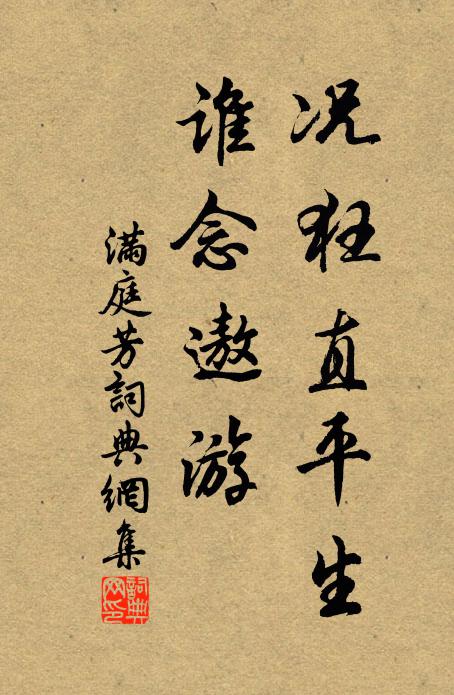 况狂直平生
谁念遨游
满庭芳詞典網集
詞典网印